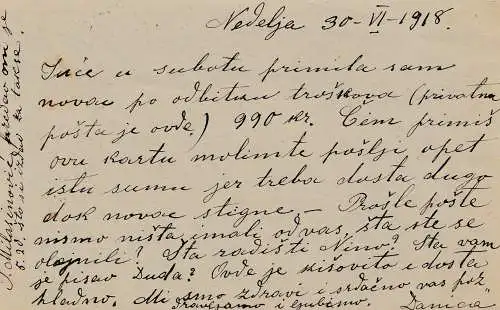 Nedelja 30-VI-1918.
Juče u subotu primila sam
novac po odbitku troškova (privatna
pošta je ovde) 990 kr. Čim primiš
ovu kartu molimte pošlji opet
istu sumu jer treba dosta dugo
dok novac stigne. — Prošle pošte
nismo ništa imali od vas, šta ste se
olenjili? Šta radišti Nino? Šta vam
je pisao Duda? Ovde je kišovito i dosta
hladno. Mi smo zdravi i srdačno vas poz-
dravljamo i ljubimo. Danica